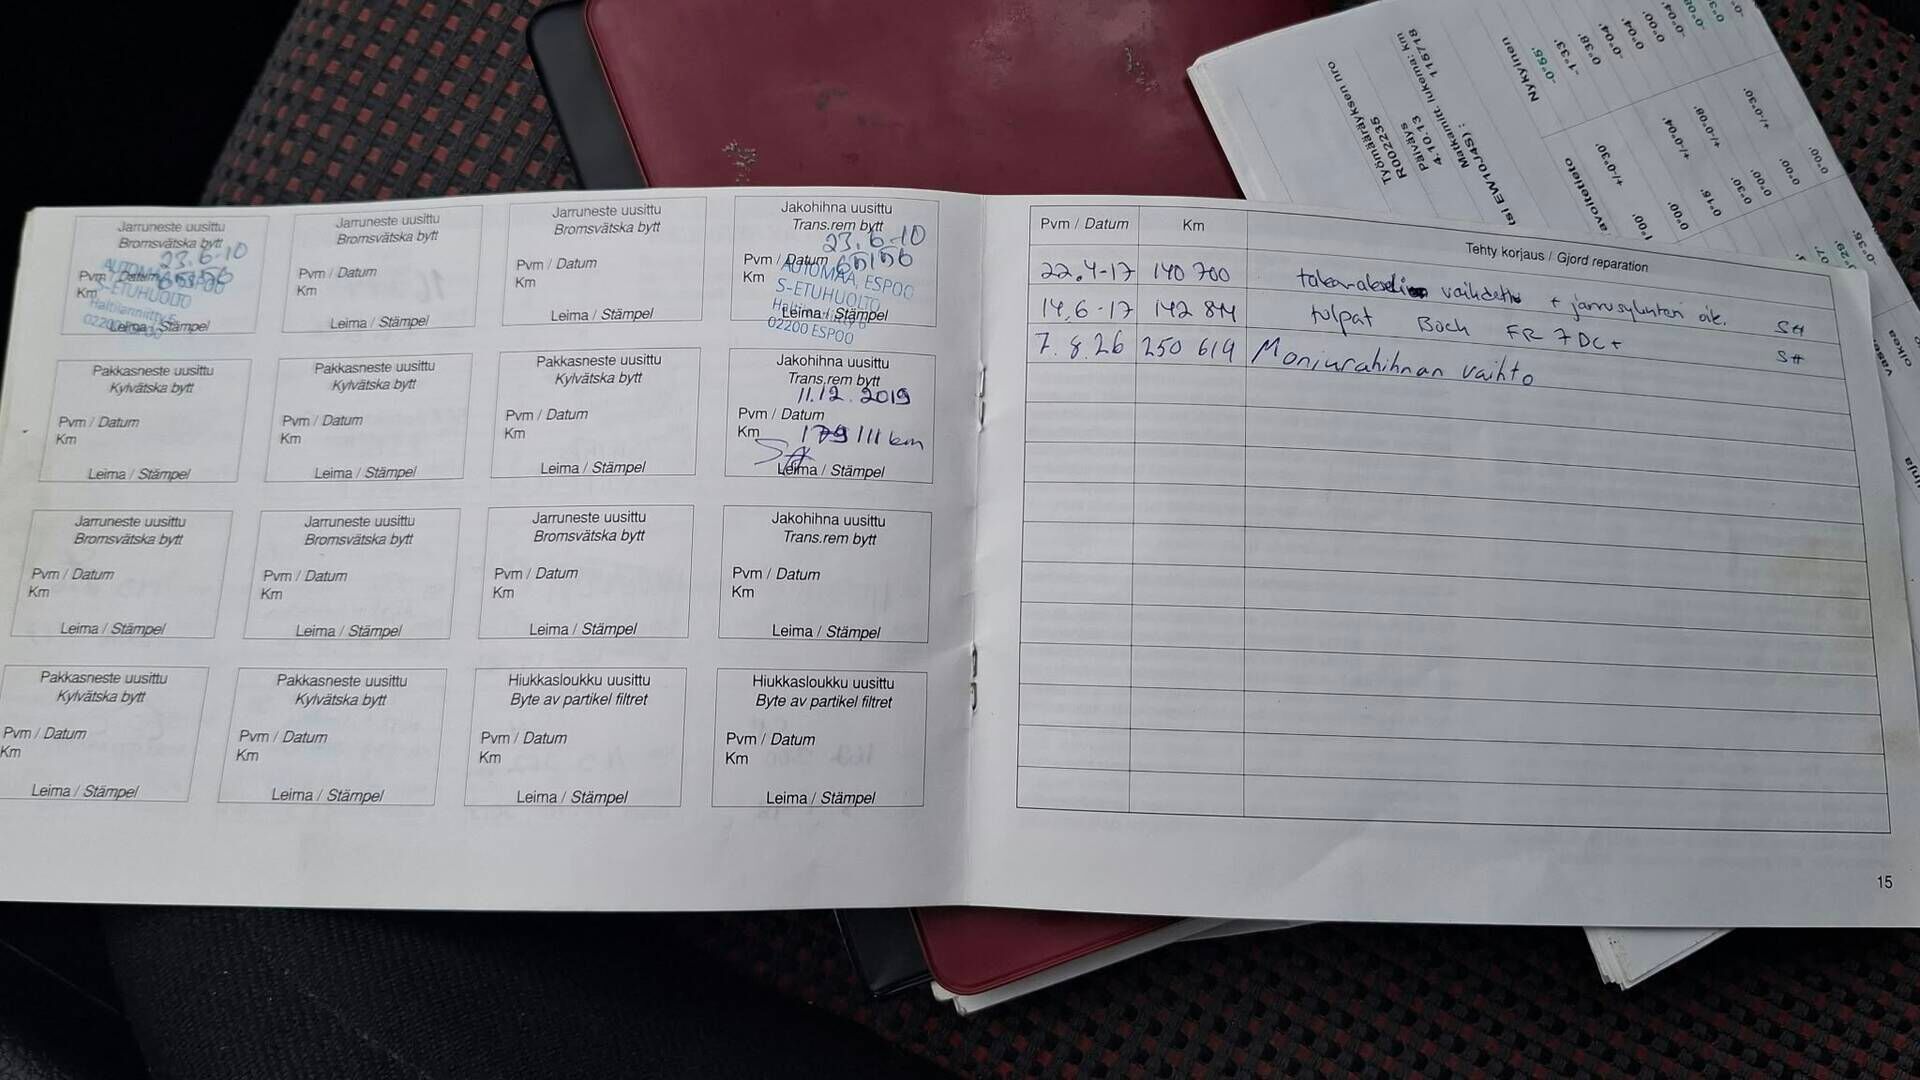 Työmääräyksen nro
R002235
Päiväys
4.10.13
Matkamitt. lukema: km
115718
tsi EW10J4S) :
Nykyinen
avoitetieto
Jarruneste uusittu
Bromsvätska bytt
23.6-10
Pvm / Datum
65156
Km
AUTOMAA, ESPOO
S-ETUHUOLTO
Haltilanniitty 6
02200 ESPOO
Leima / Stämpel
Jarruneste uusittu
Bromsvätska bytt
Pvm / Datum
Km
Leima / Stämpel
Jarruneste uusittu
Bromsvätska bytt
Pvm / Datum
Km
Leima / Stämpel
Jakohihna uusittu
Trans.rem bytt
23.6-10
Pvm / Datum 65156
Km
AUTOMAA, ESPOO
S-ETUHUOLTO
Haltilanniitty 6
02200 ESPOO
Leima / Stämpel
Pakkasneste uusittu
Kylvätska bytt
Pvm / Datum
Km
Leima / Stämpel
Pakkasneste uusittu
Kylvätska bytt
Pvm / Datum
Km
Leima / Stämpel
Pakkasneste uusittu
Kylvätska bytt
Pvm / Datum
Km
Leima / Stämpel
Jakohihna uusittu
Trans.rem bytt
11.12.2019
Pvm / Datum
Km 179 111 km
Leima / Stämpel
Jarruneste uusittu
Bromsvätska bytt
Pvm / Datum
Km
Leima / Stämpel
Jarruneste uusittu
Bromsvätska bytt
Pvm / Datum
Km
Leima / Stämpel
Jarruneste uusittu
Bromsvätska bytt
Pvm / Datum
Km
Leima / Stämpel
Jakohihna uusittu
Trans.rem bytt
Pvm / Datum
Km
Leima / Stämpel
Pakkasneste uusittu
Kylvätska bytt
Pvm / Datum
Km
Leima / Stämpel
Pakkasneste uusittu
Kylvätska bytt
Pvm / Datum
Km
Leima / Stämpel
Hiukkasloukku uusittu
Byte av partikel filtret
Pvm / Datum
Km
Leima / Stämpel
Hiukkasloukku uusittu
Byte av partikel filtret
Pvm / Datum
Km
Leima / Stämpel
Pvm / Datum Km Tehty korjaus / Gjord reparation
22.4-17 140 700 taka-akseli vaihdettu + jarrusylinteri oik. SH
14.6-17 142 844 tulpat Boch FR 7DC+ SH
7.8.26 250 619 Moniurahihnan vaihto
15